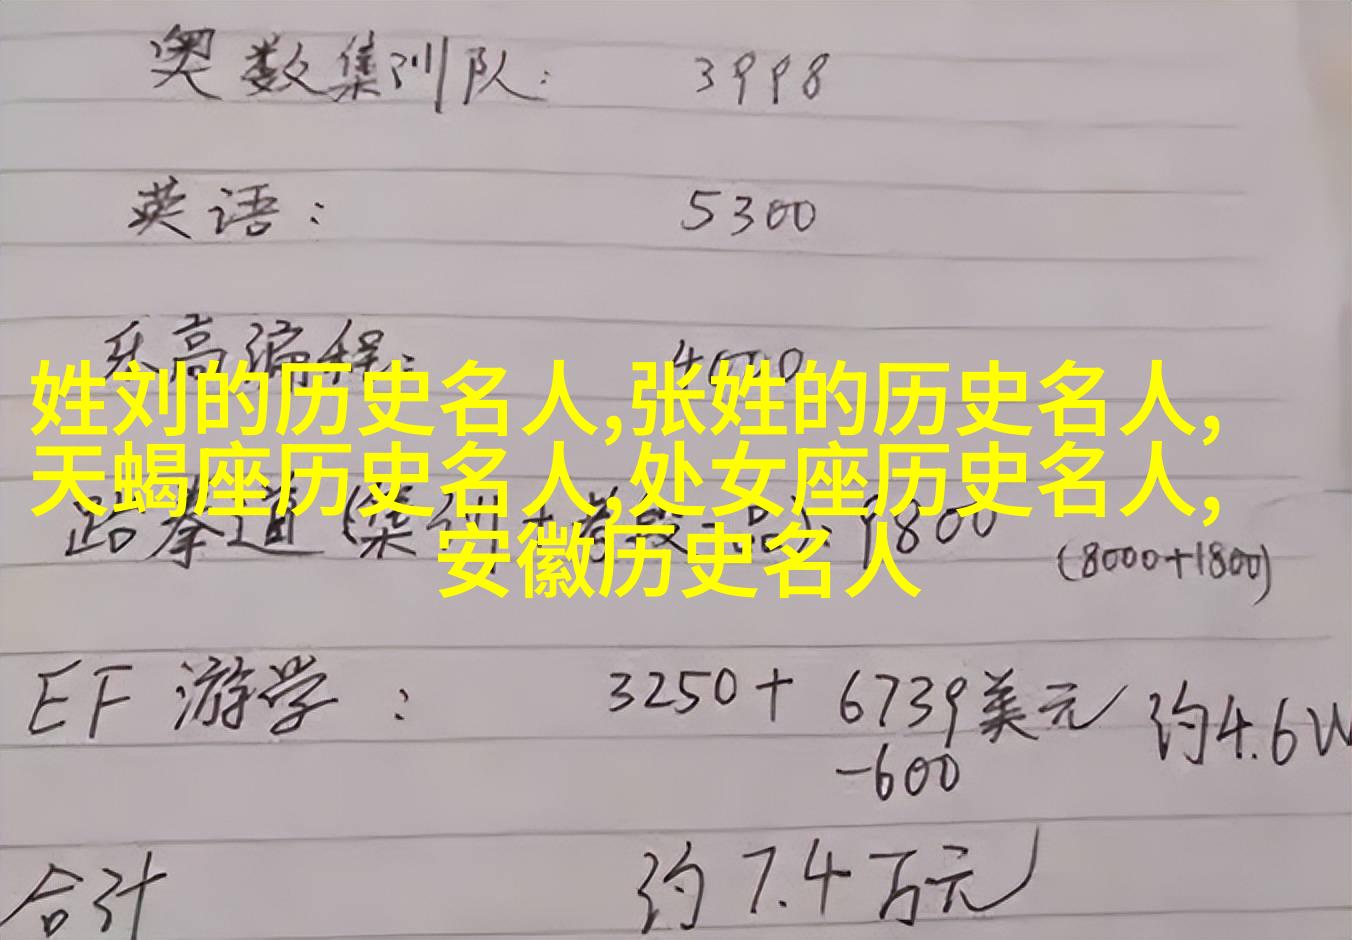 奥数集训队: 3998
英语: 5300
乐高编程:
姓刘的历史名人,张姓的历史名人,
天蝎座历史名人,处女座历史名人,
跆拳道 9800
(8000+1800)
安徽历史名人
EF 游学: 3250+6739美元 约4.6W
-600
合计 约7.4万元